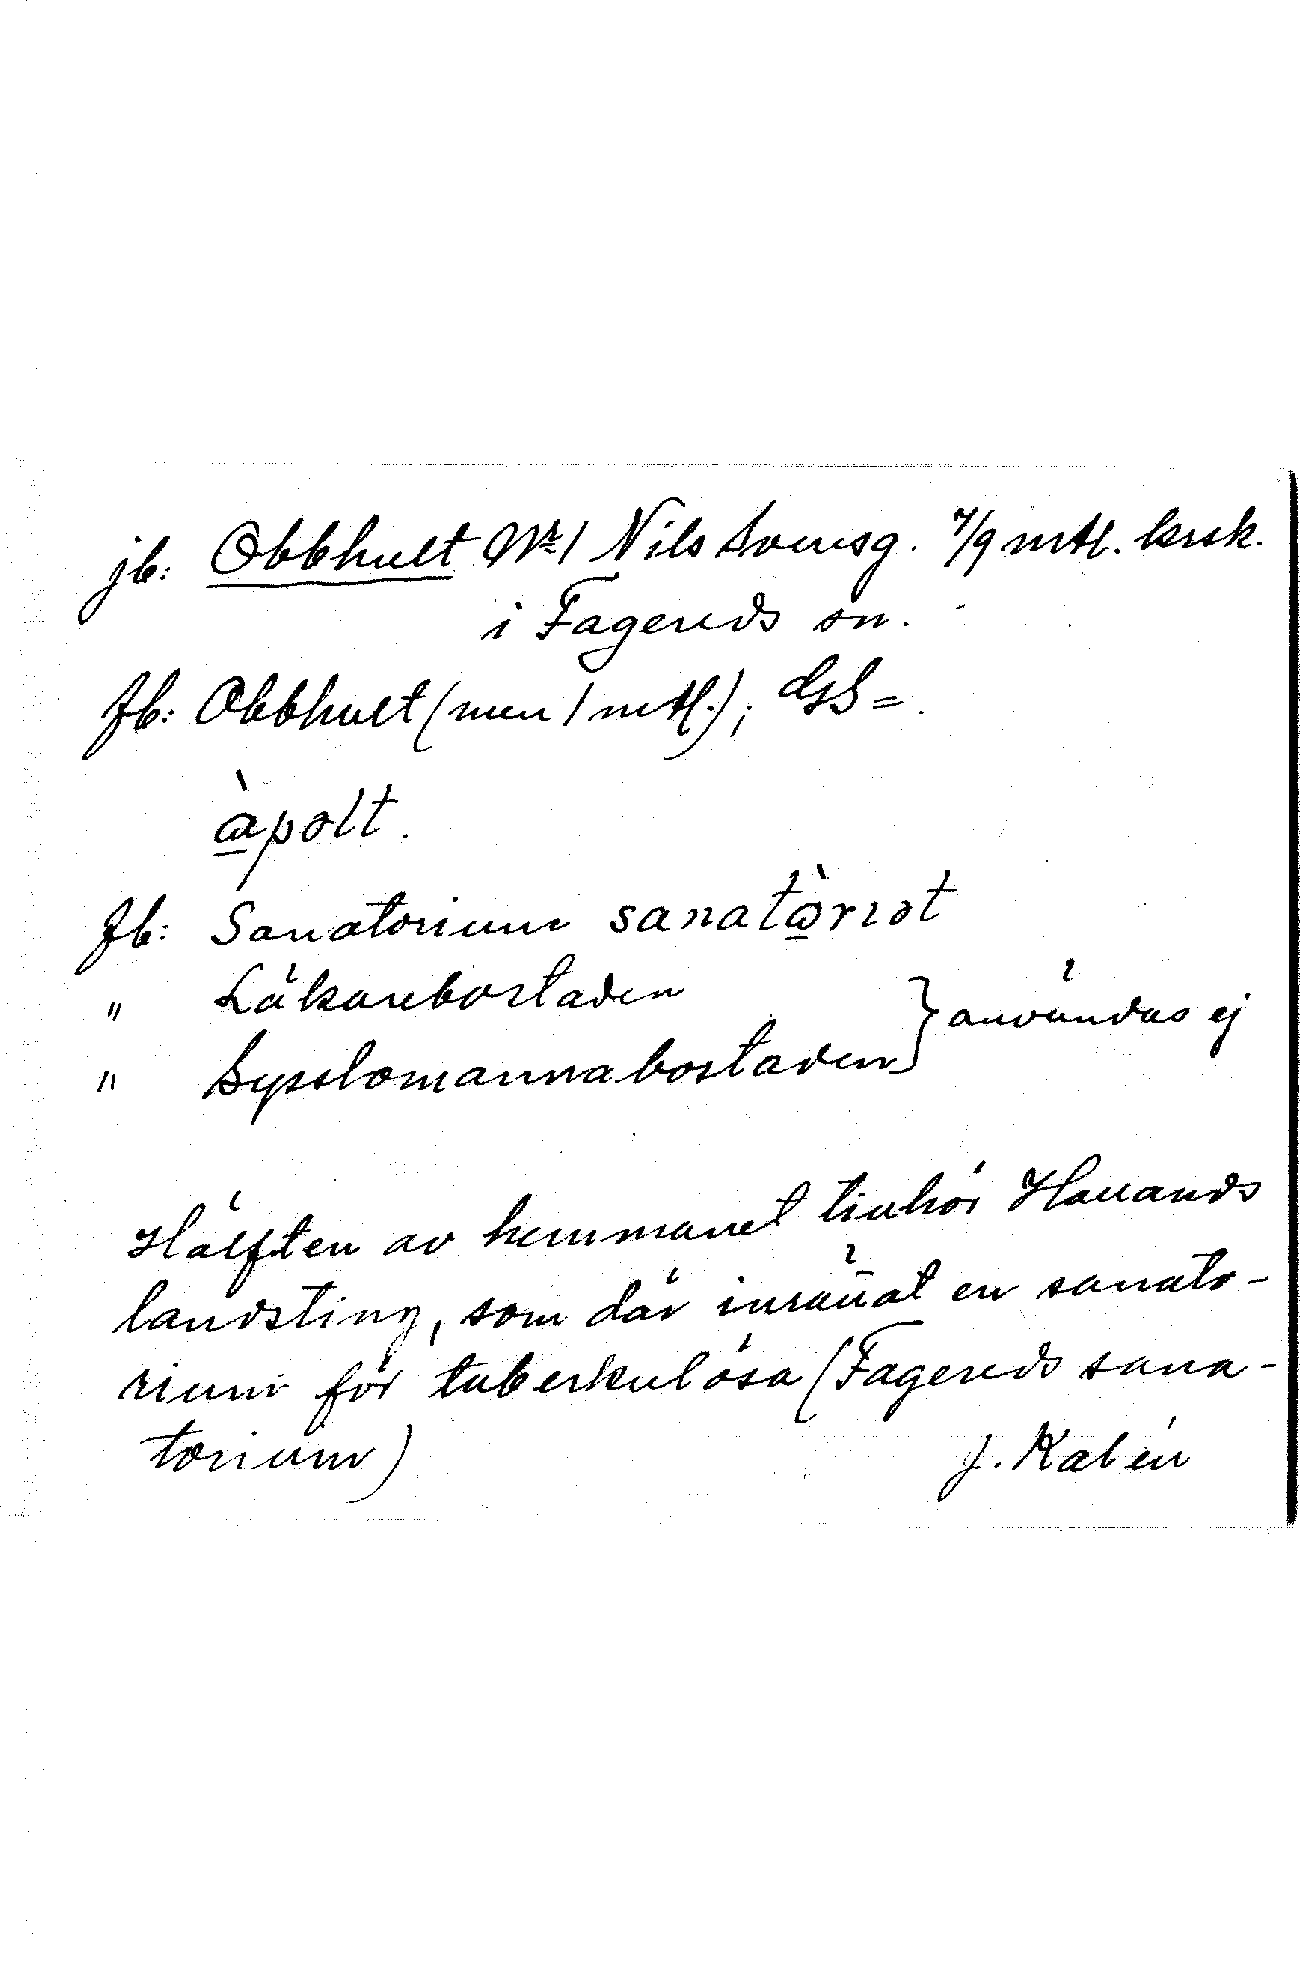 jb: Obbhult № 1 Nils Svensg. 7/9 mtl. krsk.
i Fagereds sn.
fb: Obbhult (men 1 mtl.); GS =.
sanatò̱rıət
fb: Sanatorium
" Läkarebostaden
" Sysslomannabostaden } användas ej
Hälften av hemmanet tillhör Hallands
landsting, som där inrättat en sanato-
rium för tuberkulösa (Fagereds sana-
torium)
J. Kalén